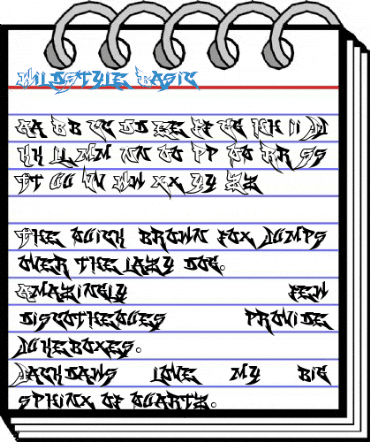 Wildstyle Basic
Aa Bb Cc Dd Ee Ff Gg Hh Ii Jj
Kk Ll Mm Nn Oo Pp Qq Rr Ss
Tt Uu Vv Ww Xx Yy Zz
The quick brown fox jumps
over the lazy dog.
Amazingly few
discotheques provide
jukeboxes.
Jackdaws love my big
sphinx of quartz.